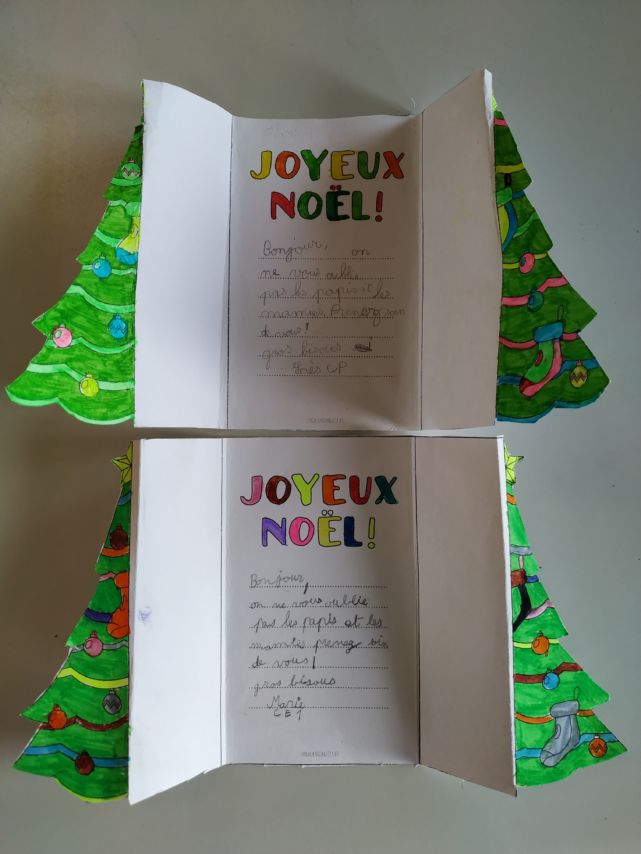 JOYEUX
NOËL!
Bonjour, on
ne vous oubli
pas les papis et les
mamies Prenez soin
de vous!
gros bisous
CP
JOYEUX
NOËL!
Bonjour,
on ne vous oublie
pas les papis et les
mamies prenez soin
de vous!
gros bisous
Marie
CE1